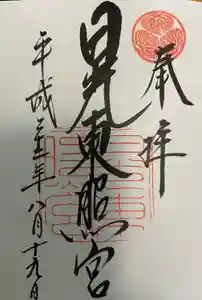 奉拝
日光東照宮
平成 年八月十九日